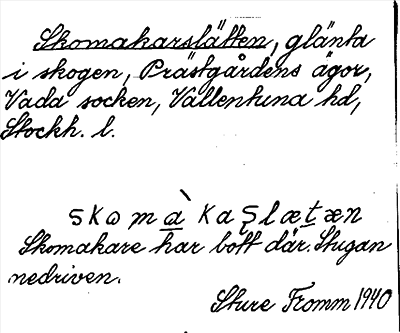 Skomakarslätten, glänta
i skogen, Prästgårdens ägor,
Vada socken, Vallentuna hd,
Stockh. l.
skomàkaʂlætæn
Skomakare har bott där. Stugan
nedriven.
Sture Fromm 1940